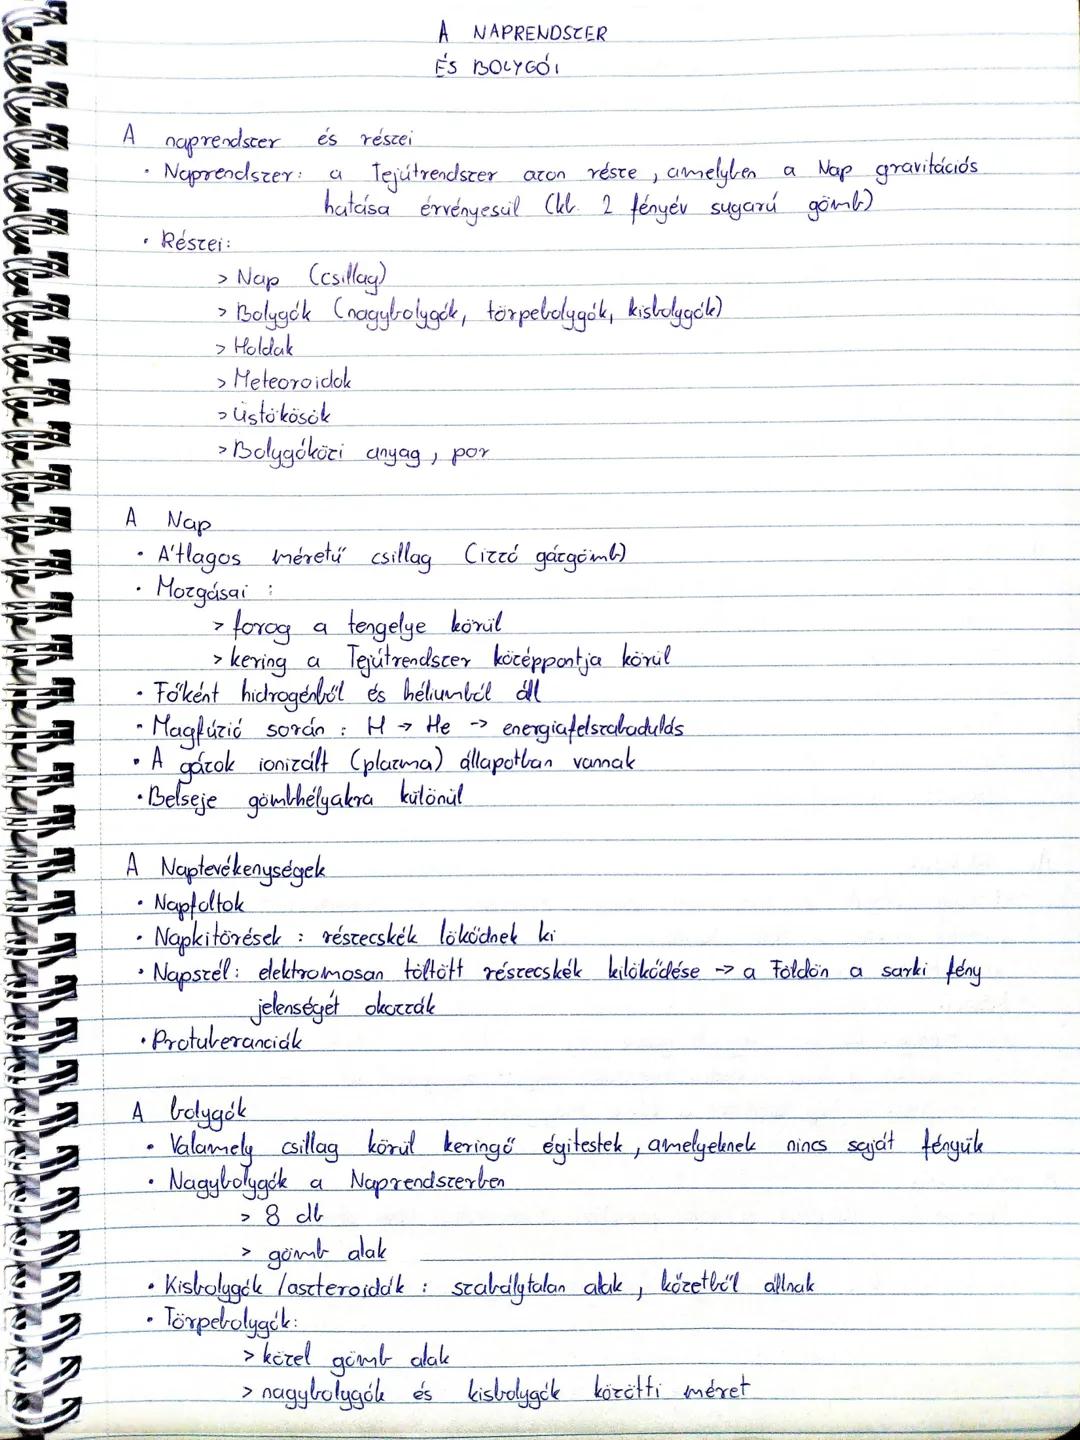 A NAPRENDSZER
ÉS BOLYGÓI
A naprendszer és részei
• Naprendszer: a Tejútrendszer azon része, amelyben a Nap gravitációs
hatása érvényesül (kb. 2 fényév sugarú gömb)
• Részei:
> Nap (csillag)
> Bolygók (nagybolygók, törpebolygók, kisbolygók)
> Holdak
> Meteoroidok
> Üstökösök
> Bolygóközi anyag, por
A Nap
• Átlagos méretű csillag (izzó gázgömb)
• Mozgásai:
> forog a tengelye körül
> kering a Tejútrendszer középpontja körül
• Főként hidrogénből és héliumból áll
• Magfúzió során: H → He → energiafelszabadulás
• A gázok ionizált (plazma) állapotban vannak
• Belseje gömbhélyakra különül
A Naptevékenységek
• Napfoltok
• Napkitörések: részecskék lökődnek ki
• Napszél: elektromosan töltött részecskék kilökődése → a Földön a sarki fény
jelenségét okozzák
• Protuberanciák
A bolygók
• Valamely csillag körül keringő égitestek, amelyeknek nincs saját fényük
• Nagybolygók a Naprendszerben
> 8 db
> gömb alak
• Kisbolygók /aszteroidák: szabálytalan alak, kőzetből állnak
• Törpebolygók:
> közel gömb alak
> nagybolygók és kisbolygók közötti méret